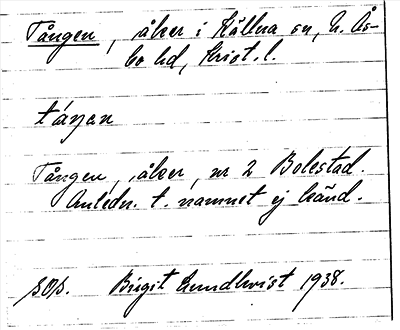 Tången, åker i Källna sn, N. Ås-
bo hd, Krist. l.
táŋan
Tången, åker, nr 2 Bolestad.
Anledn. t. namnet ej känd.
Birgit Lundkvist 1938.